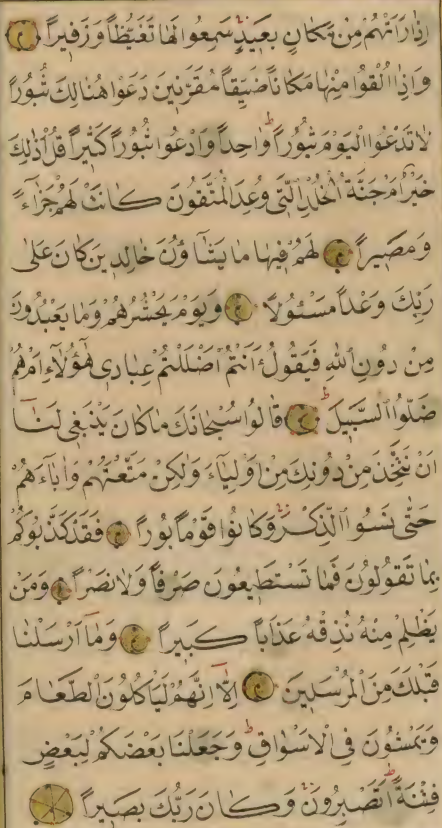 اِذَا رَاَتْهُمْ مِنْ مَكَانٍ بَعِيدٍ سَمِعُوا لَهَا تَغَيُّظًا وَزَفِيرًا
وَاِذَا اُلْقُوا مِنْهَا مَكَانًا ضَيِّقًا مُقَرَّنِينَ دَعَوْا هُنَالِكَ ثُبُورًا
لَا تَدْعُوا الْيَوْمَ ثُبُورًا وَاحِدًا وَادْعُوا ثُبُورًا كَثِيرًا قُلْ اَذٰلِكَ
خَيْرٌ اَمْ جَنَّةُ الْخُلْدِ الَّتِي وُعِدَ الْمُتَّقُونَ كَانَتْ لَهُمْ جَزَاءً
وَمَصِيرًا لَهُمْ فِيهَا مَا يَشَاؤُنَ خَالِدِينَ كَانَ عَلٰى
رَبِّكَ وَعْدًا مَسْئُولًا وَيَوْمَ يَحْشُرُهُمْ وَمَا يَعْبُدُونَ
مِنْ دُونِ اللّٰهِ فَيَقُولُ ءَاَنْتُمْ اَضْلَلْتُمْ عِبَادِى هٰؤُلَاءِ اَمْ هُمْ
ضَلُّوا السَّبِيلَ قَالُوا سُبْحَانَكَ مَا كَانَ يَنْبَغِى لَنَا
اَنْ نَتَّخِذَ مِنْ دُونِكَ مِنْ اَوْلِيَاءَ وَلٰكِنْ مَتَّعْتَهُمْ وَاٰبَاءَهُمْ
حَتّٰى نَسُوا الذِّكْرَ وَكَانُوا قَوْمًا بُورًا فَقَدْ كَذَّبُوكُمْ
بِمَا تَقُولُونَ فَمَا تَسْتَطِيعُونَ صَرْفًا وَلَا نَصْرًا وَمَنْ
يَظْلِمْ مِنْهُ نُذِقْهُ عَذَابًا كَبِيرًا وَمَا اَرْسَلْنَا
قَبْلَكَ مِنَ الْمُرْسَلِينَ اِلَّا اِنَّهُمْ لَيَاْكُلُونَ الطَّعَامَ
وَيَمْشُونَ فِى الْاَسْوَاقِ وَجَعَلْنَا بَعْضَكُمْ لِبَعْضٍ
فِتْنَةً اَتَصْبِرُونَ وَكَانَ رَبُّكَ بَصِيرًا